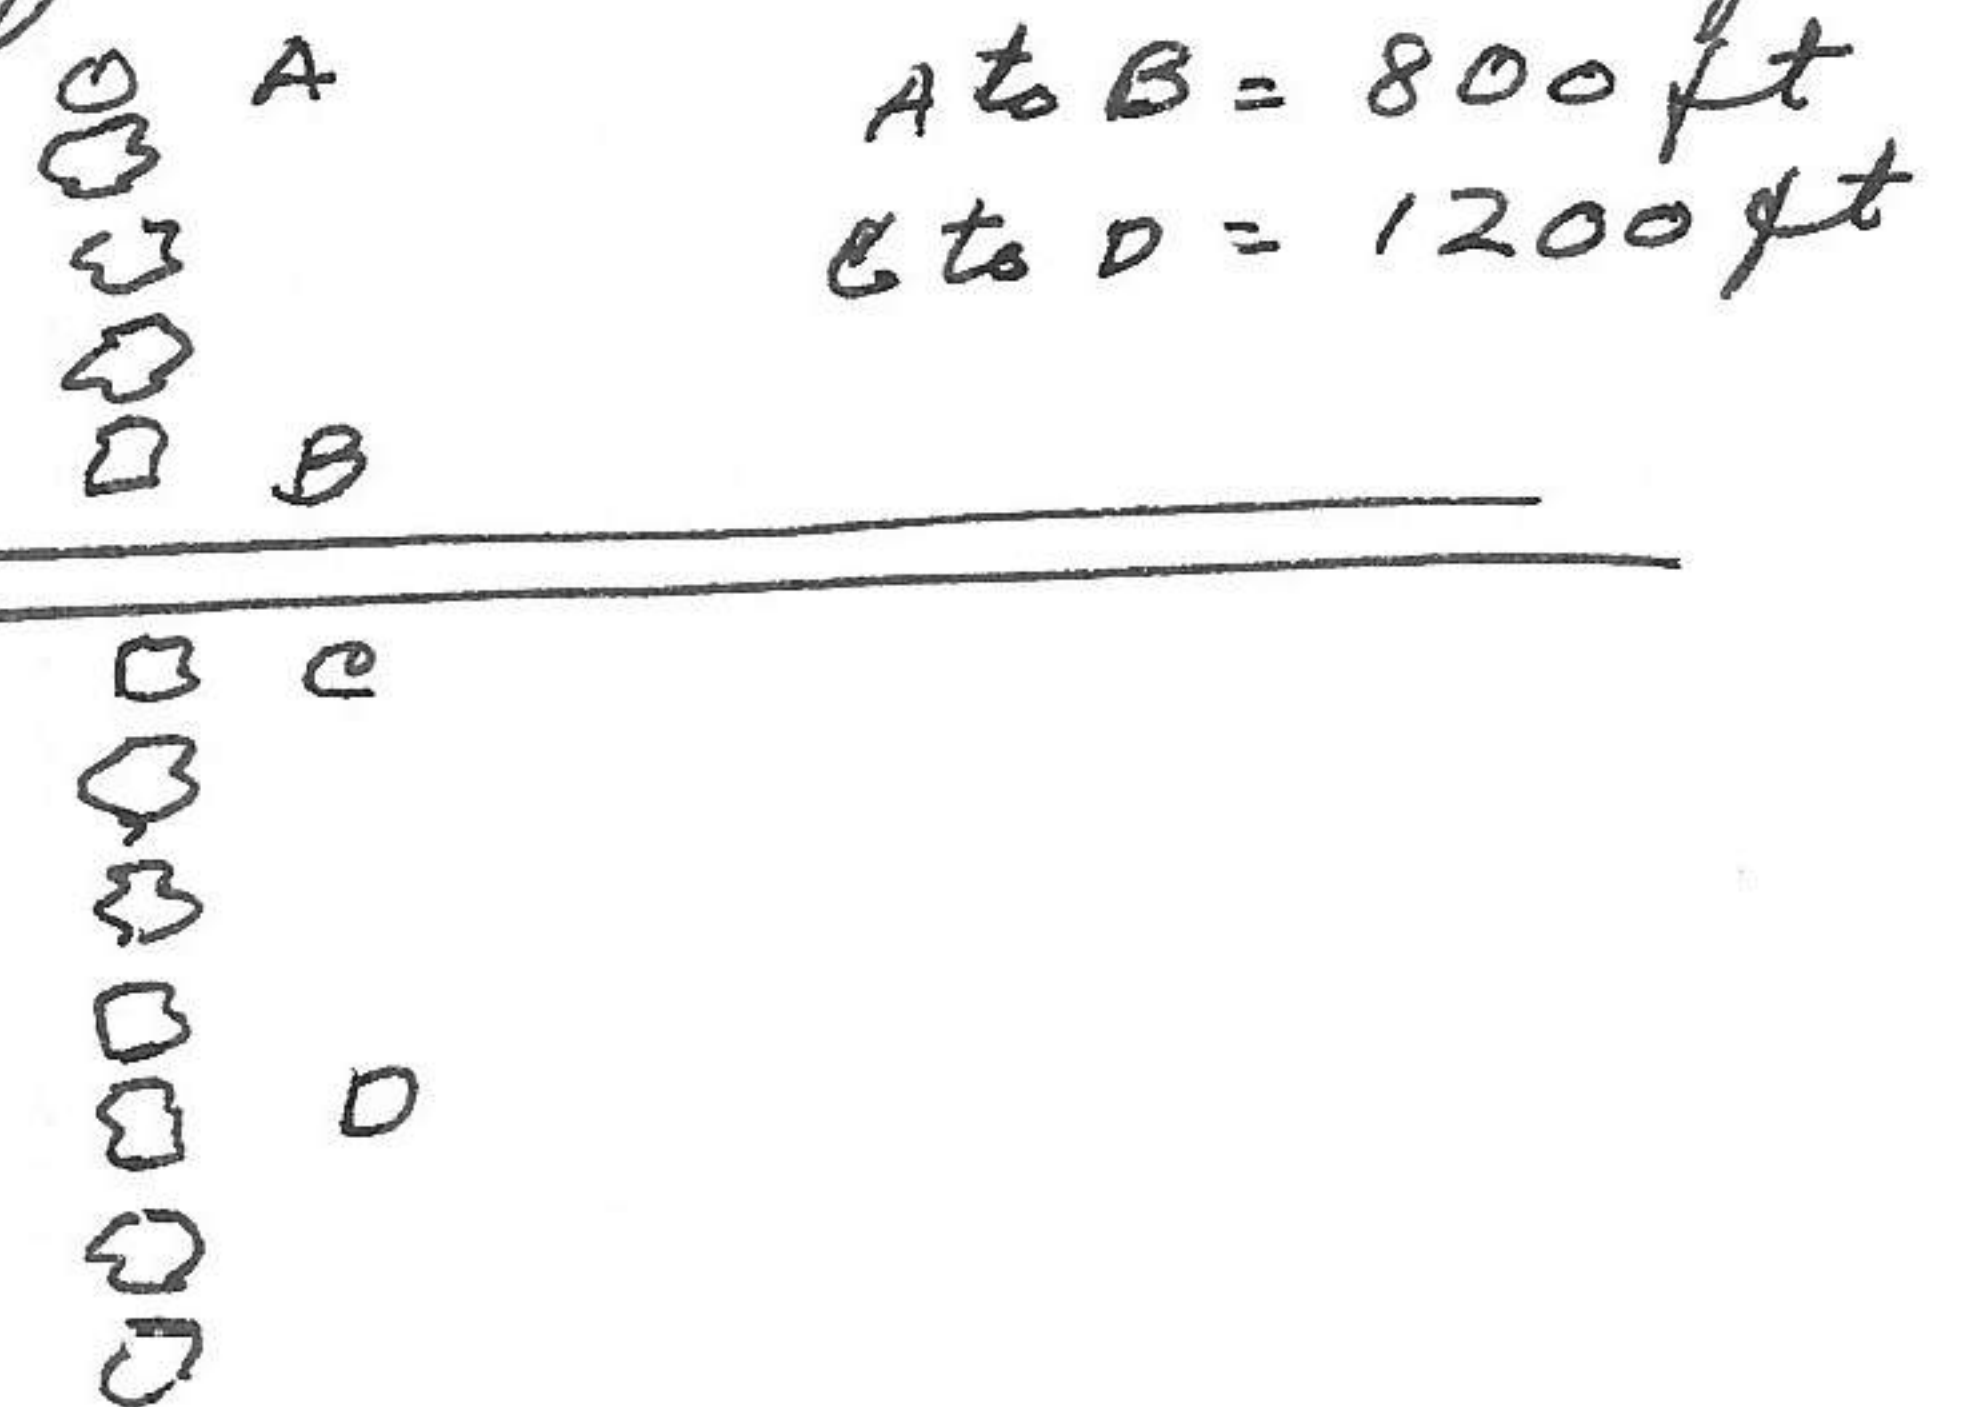 A
A to B = 800 ft
C to D = 1200 ft
B
C
D